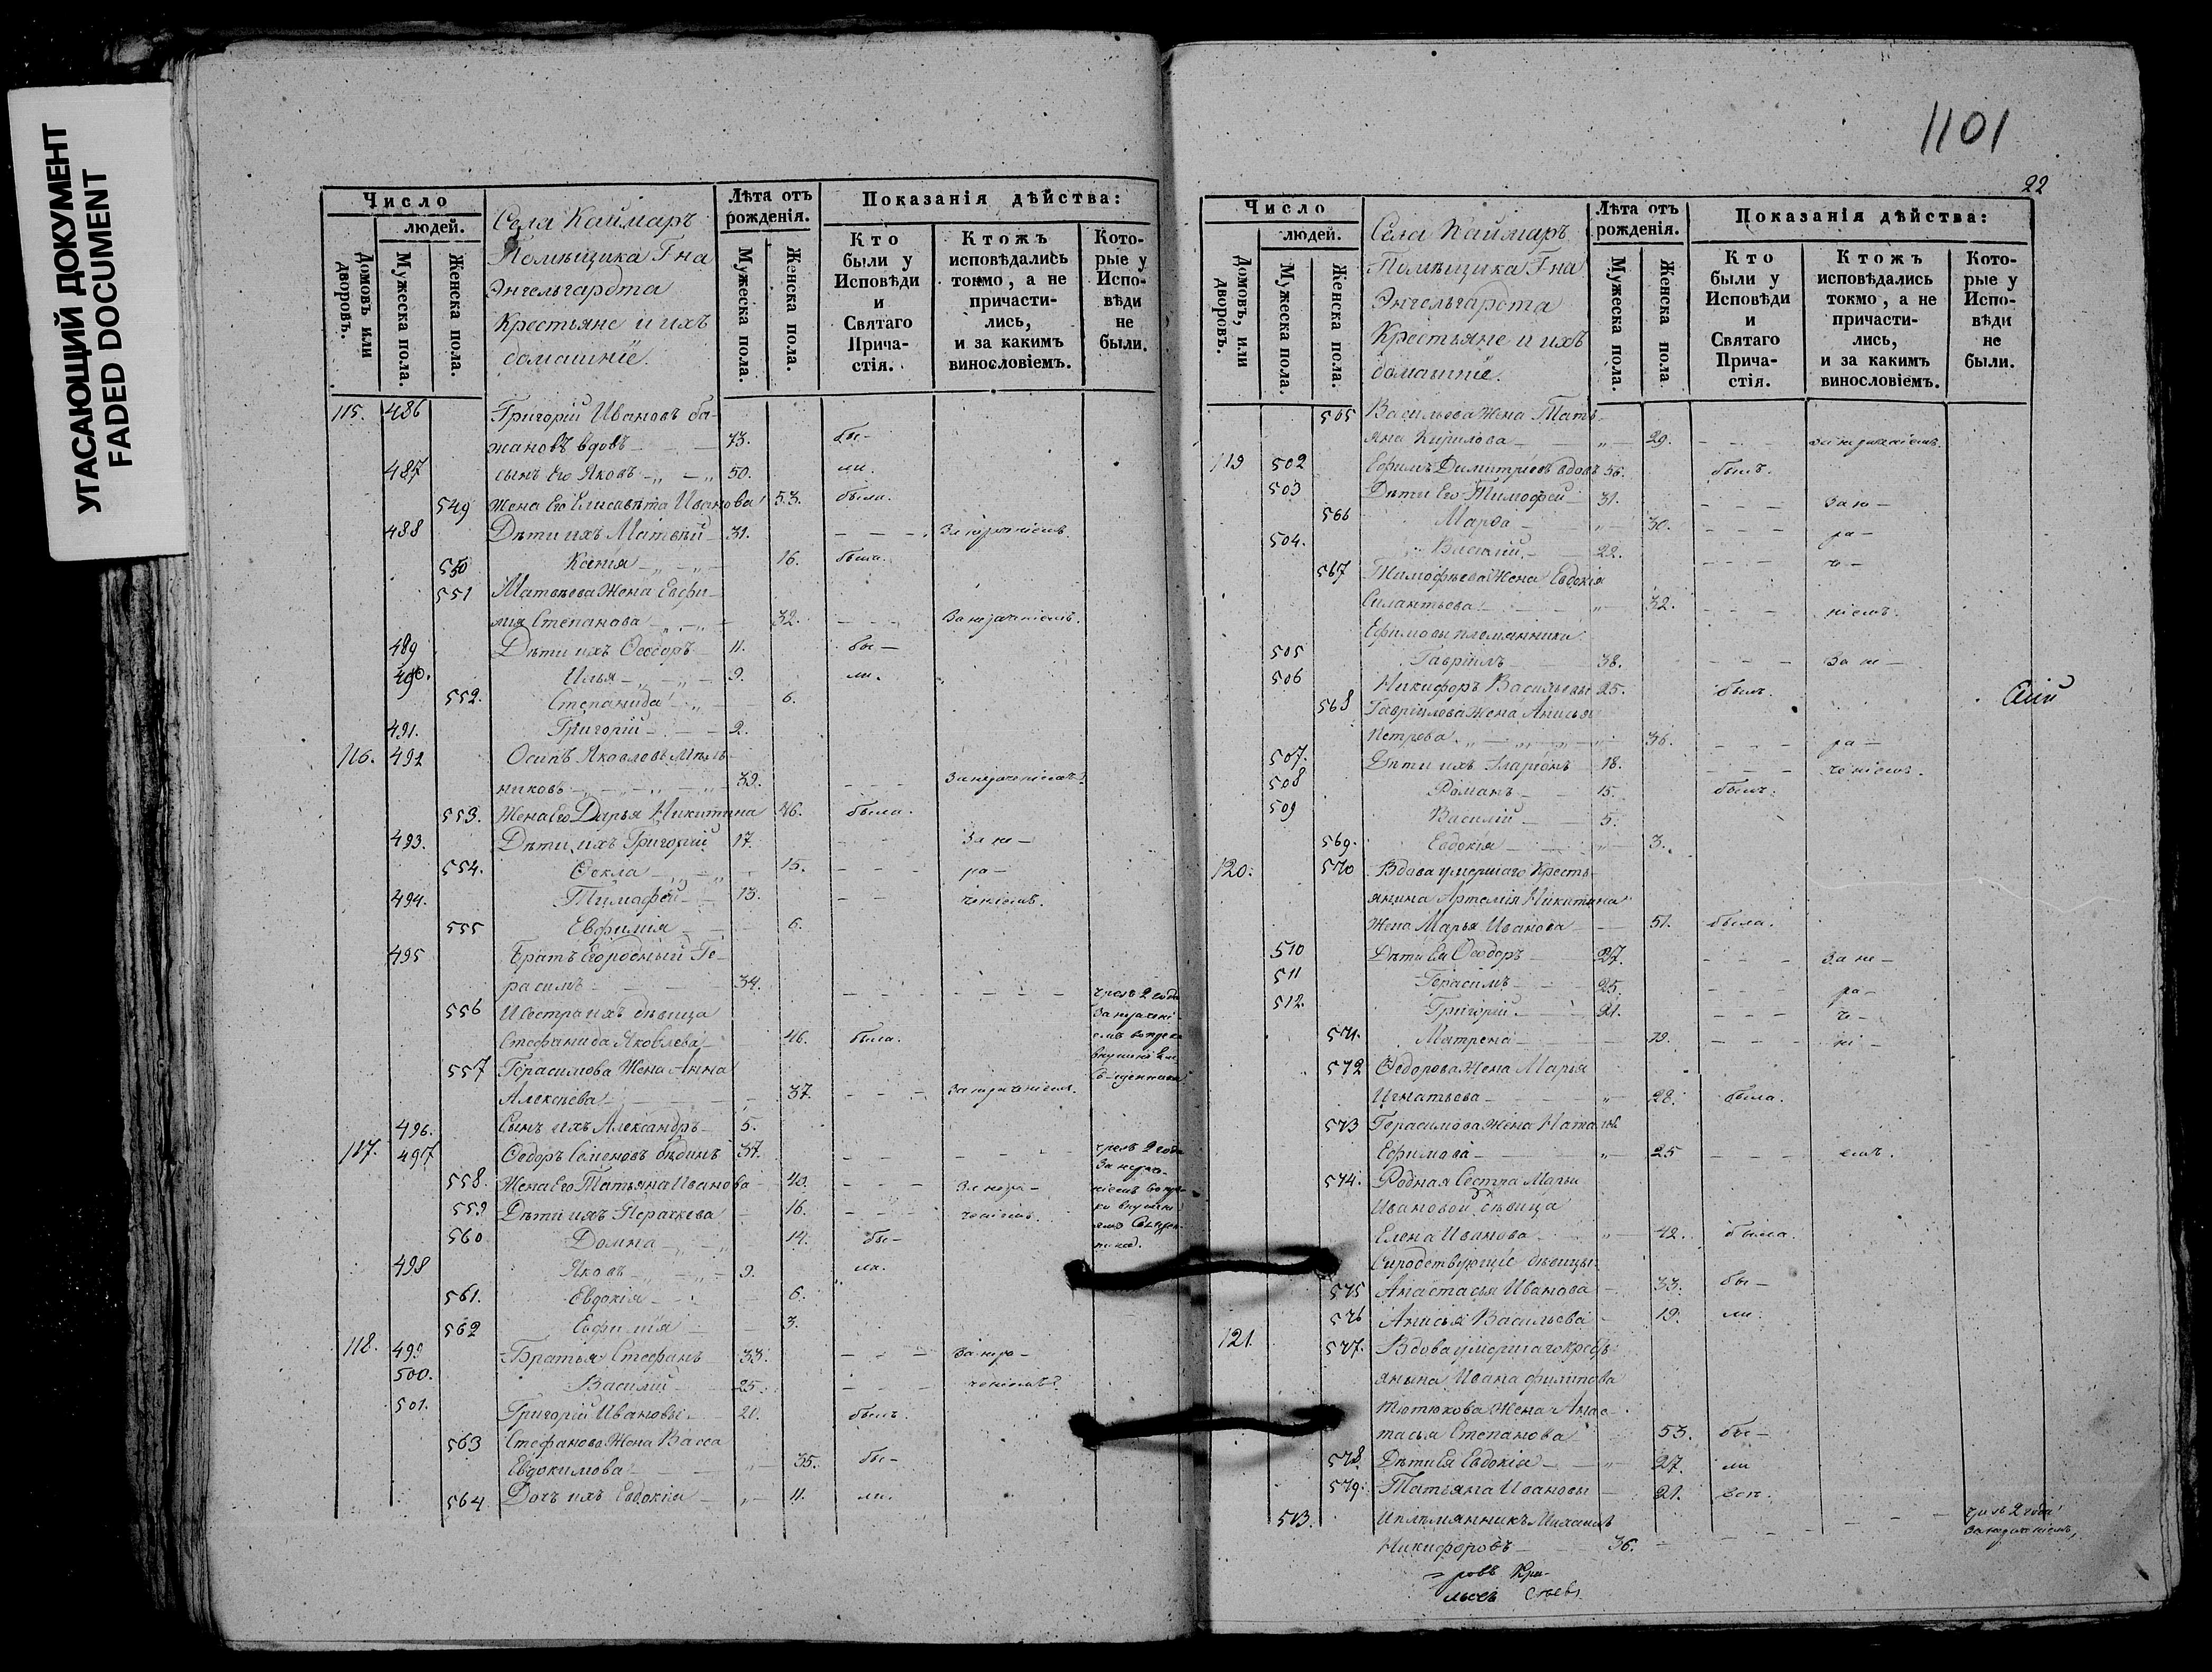 УГАСАЮЩИЙ ДОКУМЕНТ
FADED DOCUMENT
Число
людей.
Домовъ или дворовъ.
Мужеска пола.
Женска пола.
Села Каймаръ
Помѣщика Г на
Энгельгардта
Крестьяне и ихъ
домашніе.
Лѣта отъ рожденія.
Мужеска пола.
Женска пола.
Показанія дѣйства:
Кто были у Исповѣди и Святаго Прича-стія.
Ктожъ исповѣдались токмо, а не причасти-лись, и за какимъ винословіемъ.
Кото-рые у Испо-вѣди не были.
115. 486 Григорій Ивановъ ба-
жановъ вдовъ 73. бы-
487 сынъ Его Яковъ 50. ли.
549 Жена Его Елисавѣта Иванова 53. была.
488 Дѣти ихъ Матвѣй 31. За нераченіемъ.
550 Ксенія 16. была.
551 Матвѣева Жена Евфи-
мія Степанова 32. За нераченіемъ.
489 Дѣти ихъ Ѳеодоръ 11. бы-
490. Илья 9. ли.
552. Степанида 6.
491. Григорій 2.
116. 492 Осипъ Яковлевъ Мѣль-
никовъ 39. За нераченіемъ.
553. Жена Его Дарья Никитина 46. была.
493. Дѣти ихъ Григорій 17. За не-
554. Ѳекла 15. ра-
494. Тимофей 13. ченіемъ.
555 Евфимія 6.
495 Братъ Его родный Ге-
расимъ 34. чрезъ 2 года
556 И Сестра ихъ дѣвица За нерачені-
Стефанида Яковлева 46. была. емъ вопреки
557 Герасимова Жена Анна
Алексѣева 37. За нераченіемъ.
496. Сынъ ихъ Александръ 5.
117. 497 Ѳедоръ Семеновъ 37. чрезъ 2 года
558. Жена Его Татьяна Иванова 40. За нера-
559 Дѣти ихъ Перасковья 16. ченіемъ.
560 Домна 14. бы-
498 Яковъ 9. ли.
561. Евдокія 6.
562 Евфимія 3.
118. 499 Братья Стефанъ 33. За нера-
500. Василій 25. ченіемъ.
501. Григорій Ивановы 20. былъ.
563 Стефанова Жена Васса
Евдокимова 35. бы-
564 Дочь ихъ Евдокія 11. ли.
1101
22
Число
людей.
Домовъ, или дворовъ.
Мужеска пола.
Женска пола.
Села Каймаръ
Помѣщика Г на
Энгельгардта
Крестьяне и ихъ
домашніе.
Лѣта отъ рожденія.
Мужеска пола.
Женска пола
Показанія дѣйства:
Кто были у Исповѣди и Святаго Прича-стія.
Ктожъ исповѣдались токмо, а не причасти-лись, и за какимъ винословіемъ.
Кото-рые у Испо-вѣди не были.
565 Васильева Жена Тать-
яна Кирилова 29. За нераченіемъ.
119 502 Ефимъ Димитріевъ вдовъ 56. былъ.
503 Дѣти Его Тимофей 31. За не-
566 Марѳа 30. ра-
504. Василій 22. че-
567 Тимофѣева Жена Евдокія
Силантьева 32. ніемъ.
Ефимовы племянники
505 Гавріилъ 38. За не-
506 Никифоръ Васильевы 25. былъ.
568 Гавріилова Жена Анисья
Петрова 36. ра-
507. Дѣти ихъ Ларіонъ 18. ченіемъ.
508 Романъ 15. былъ.
509 Василій 5.
569. Евдокія 3.
120. 570 Вдова умершаго Кресть-
янина Артемія Никитина
Жена Марья Иванова 51. была.
510 Дѣти Ея Ѳеодоръ 27. За не-
511 Герасимъ 25. ра-
512. Григорій 21. че-
571. Матрена 19. ні-
572 Ѳедорова Жена Марья
Игнатьева 28. была.
573 Герасимова Жена Наталья
Ефимова 25 емъ.
574. Родная Сестра Марьи
Ивановой дѣвица
Елена Иванова 42. была.
Сиродствующіе дѣвицы
575 Анастасья Иванова 33. бы-
576 Анисья Васильева 19. ли.
121. 577. Вдова умершаго кресть-
янина Ивана Филипова
Тютюкова Жена Анас-
тасья Степанова 53. бы-
578. Дѣти Ея Евдокія 27. ли
579. Татіяна Ивановы 21. всѣ.
513. И племянникъ Михаилъ чрезъ 2 года
Никифоровъ 36. За нераченіемъ,